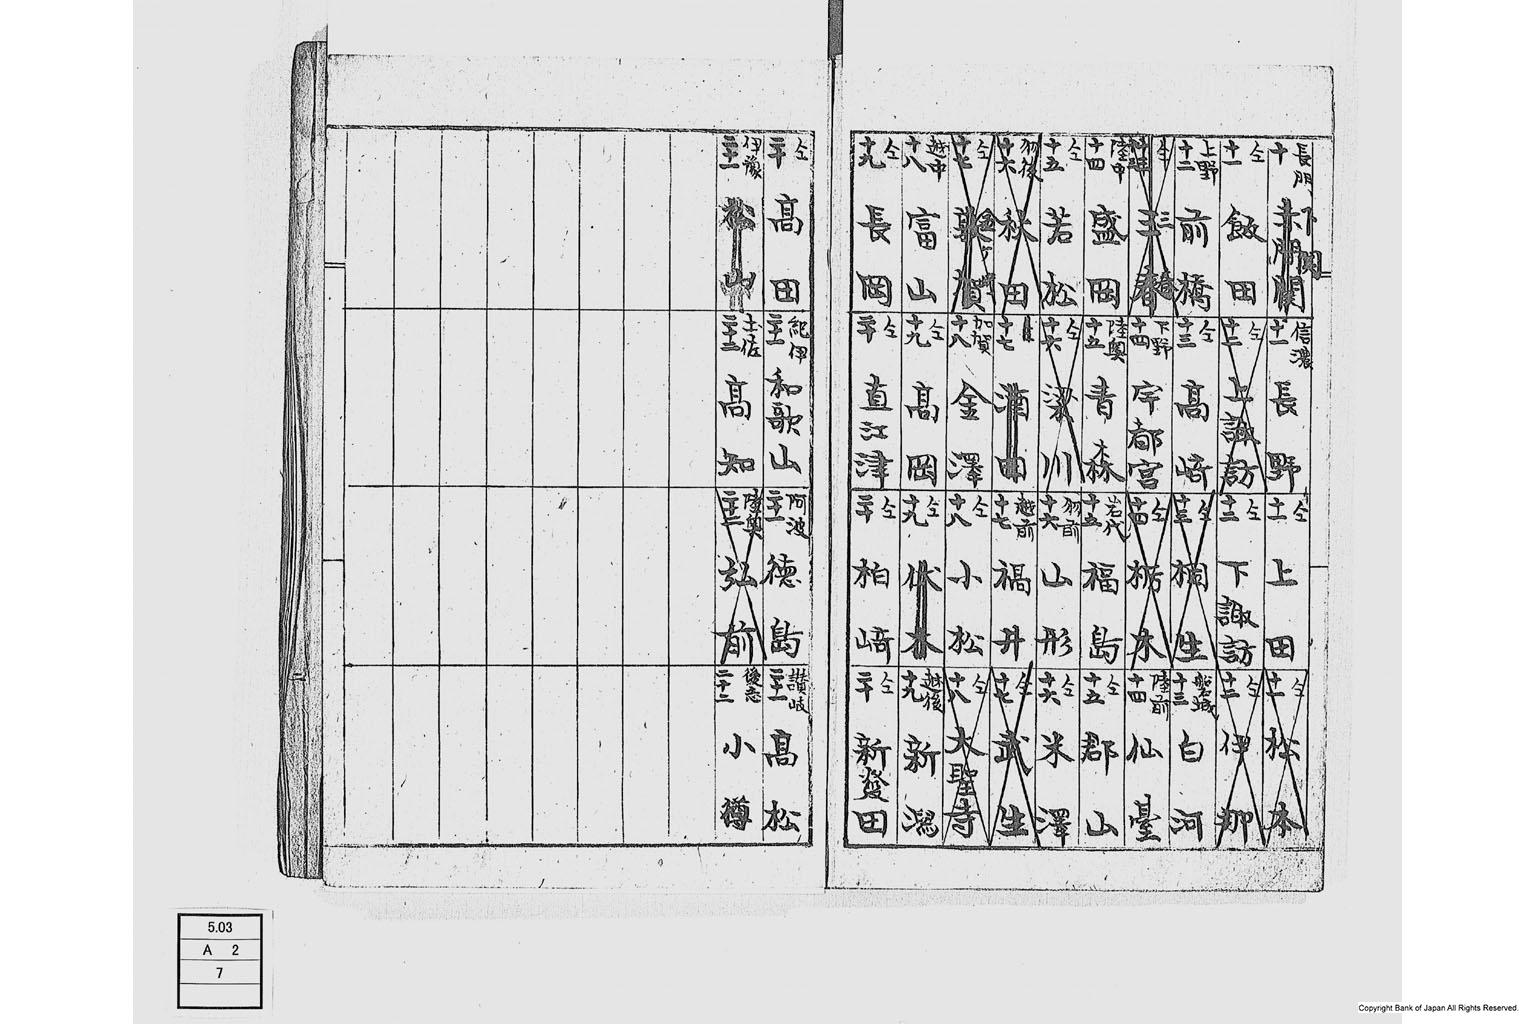 長門 十 赤間關 下関
信濃 十一 長野
仝 十一 上田
仝 十一 松本
仝 十一 飯田
仝 十二 上諏訪
仝 十二 下諏訪
仝 十二 伊那
上野 十二 前橋
仝 十三 高﨑
仝 十三 桐生
磐城 十三 白河
仝 三春
下野 十四 宇都宮
仝 十四 栃木
陸前 十四 仙臺
陸中 十四 盛岡
陸奥 十五 青森
岩代 十五 福島
仝 十五 郡山
仝 十五 若松
仝 十六 梁川
羽前 十六 山形
仝 十六 米澤
羽後 十六 秋田
十七 田
越前 十七 福井
仝 十七 武生
仝 十七 敦賀
加賀 十八 金澤
仝 十八 小松
仝 十八 大聖寺
越中 十八 富山
仝 十九 高岡
仝 十九 伏木
越後 十九 新潟
仝 十九 長岡
仝 二十 直江津
仝 二十 柏﨑
仝 二十 新發田
仝 二十 髙田
紀伊 二十一 和歌山
阿波 二十一 德島
讃岐 二十一 髙松
伊豫 二十一 松山
土佐 二十二 髙知
陸奥 二十二 弘前
後志 二十二 小樽
5.03
A 2
7
Copyright Bank of Japan All Rights Reserved.